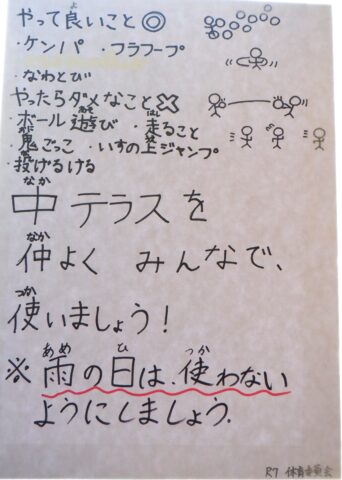 やって良いこと◎
・ケンパ ・フラフープ
・なわとび
やったらダメなこと×
・ボール遊び ・走ること
・鬼ごっこ ・いすの上ジャンプ
・投げるける
中テラスを
仲よく みんなで、
使いましょう!
※雨の日は、使わない
ようにしましょう.
R7 体育委員会